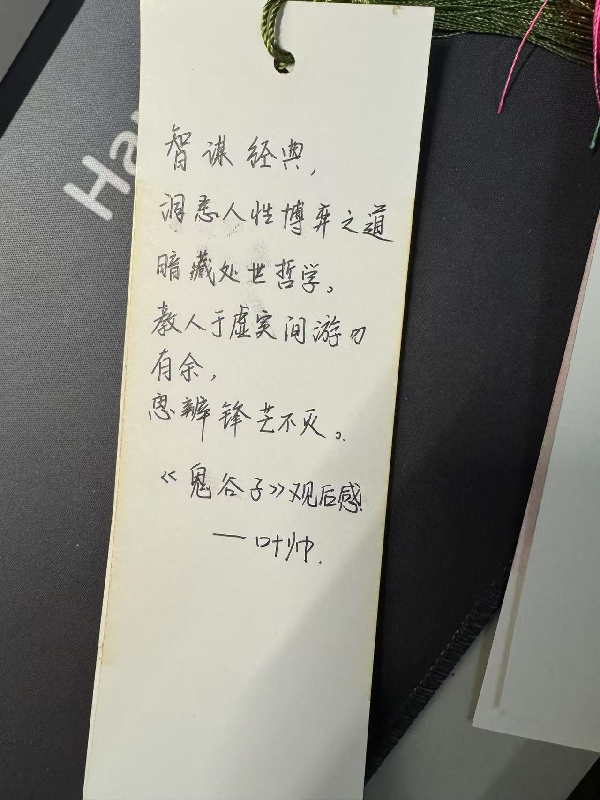 Ha
智谋经典，
洞悉人性博弈之道
暗藏处世哲学。
教人于虚实间游刃
有余，
思辨锋芒不灭。
《鬼谷子》观后感
一叶帅.